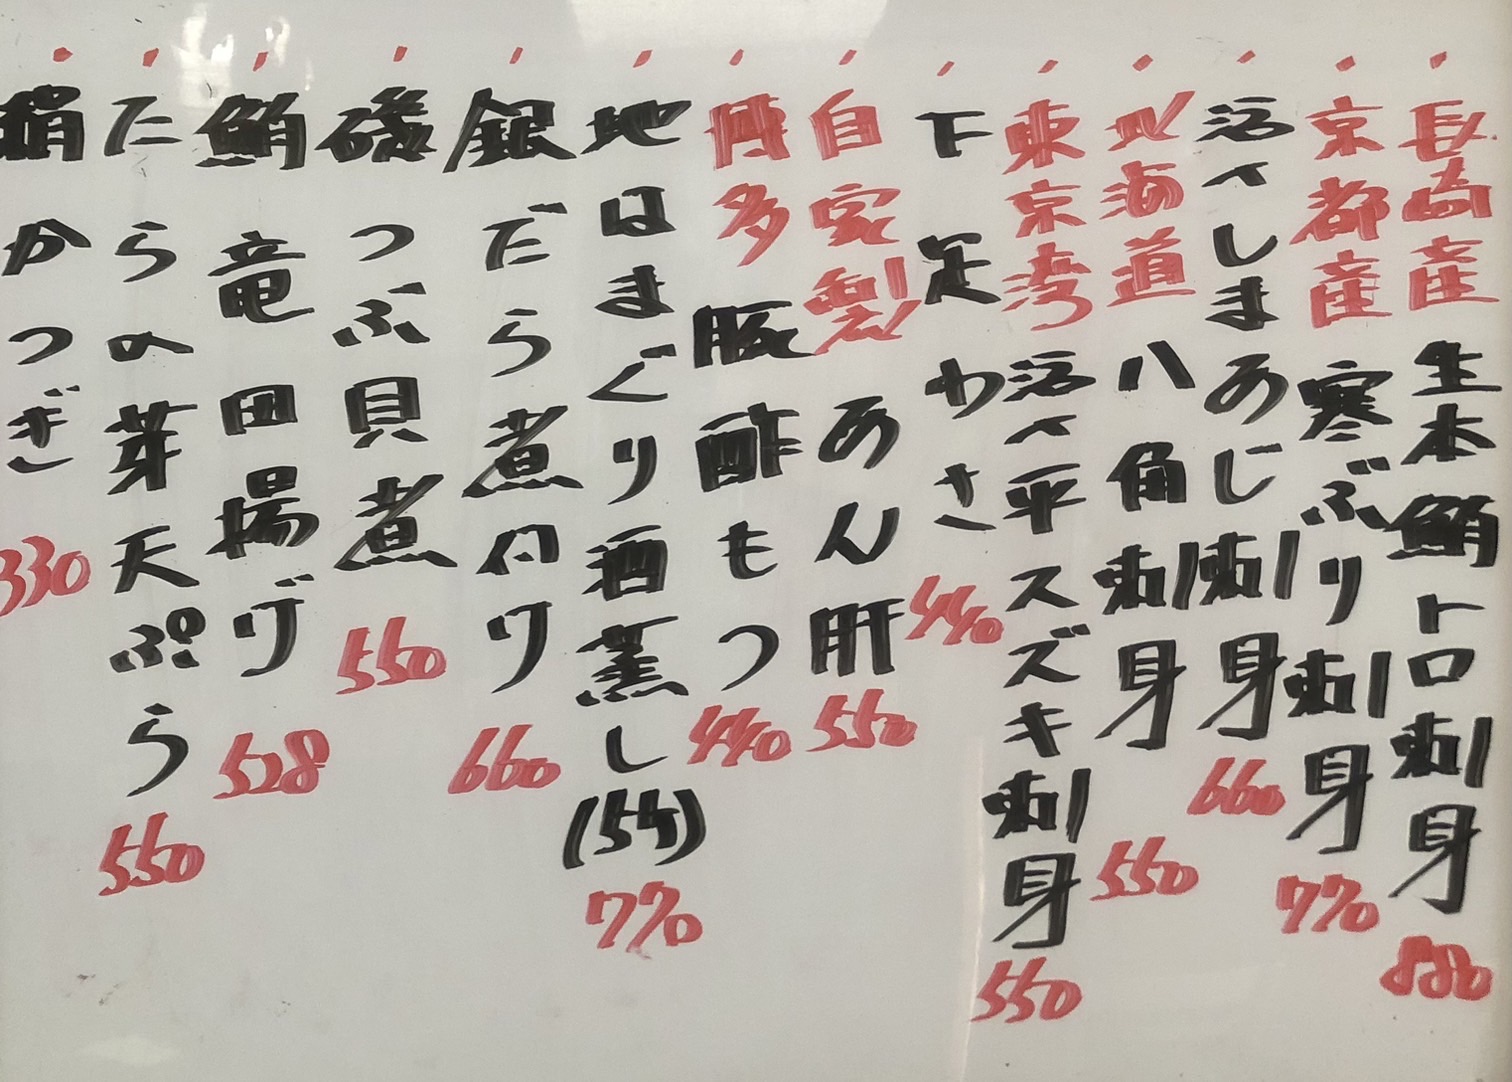 長崎産生本鮪トロ刺身 880
京都産寒ぶり刺身 770
活〆しまあじ刺身 660
北海道八角刺身 550
東京湾活〆平スズキ刺身 550
下足わさ 440
自家製あん肝 550
博多豚酢もつ 440
地はまぐり酒蒸し(5ケ) 770
銀だら煮付け 660
磯つぶ貝煮 550
鮪竜田揚げ 528
たらの芽天ぷら 550
絹かつぎ 330